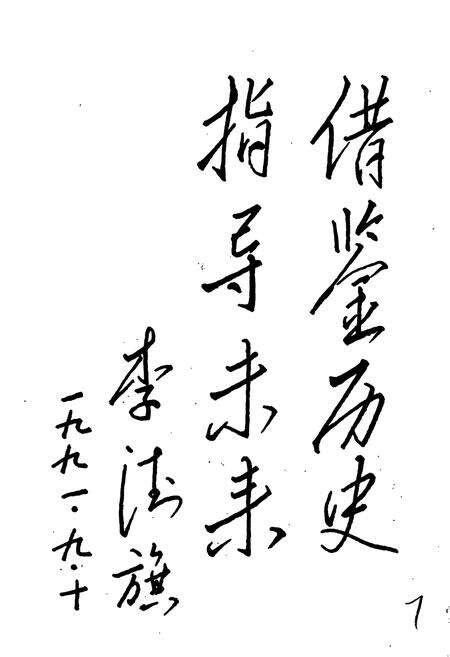 借鉴历史
指导未来
李涛旗
一九九一·九·十